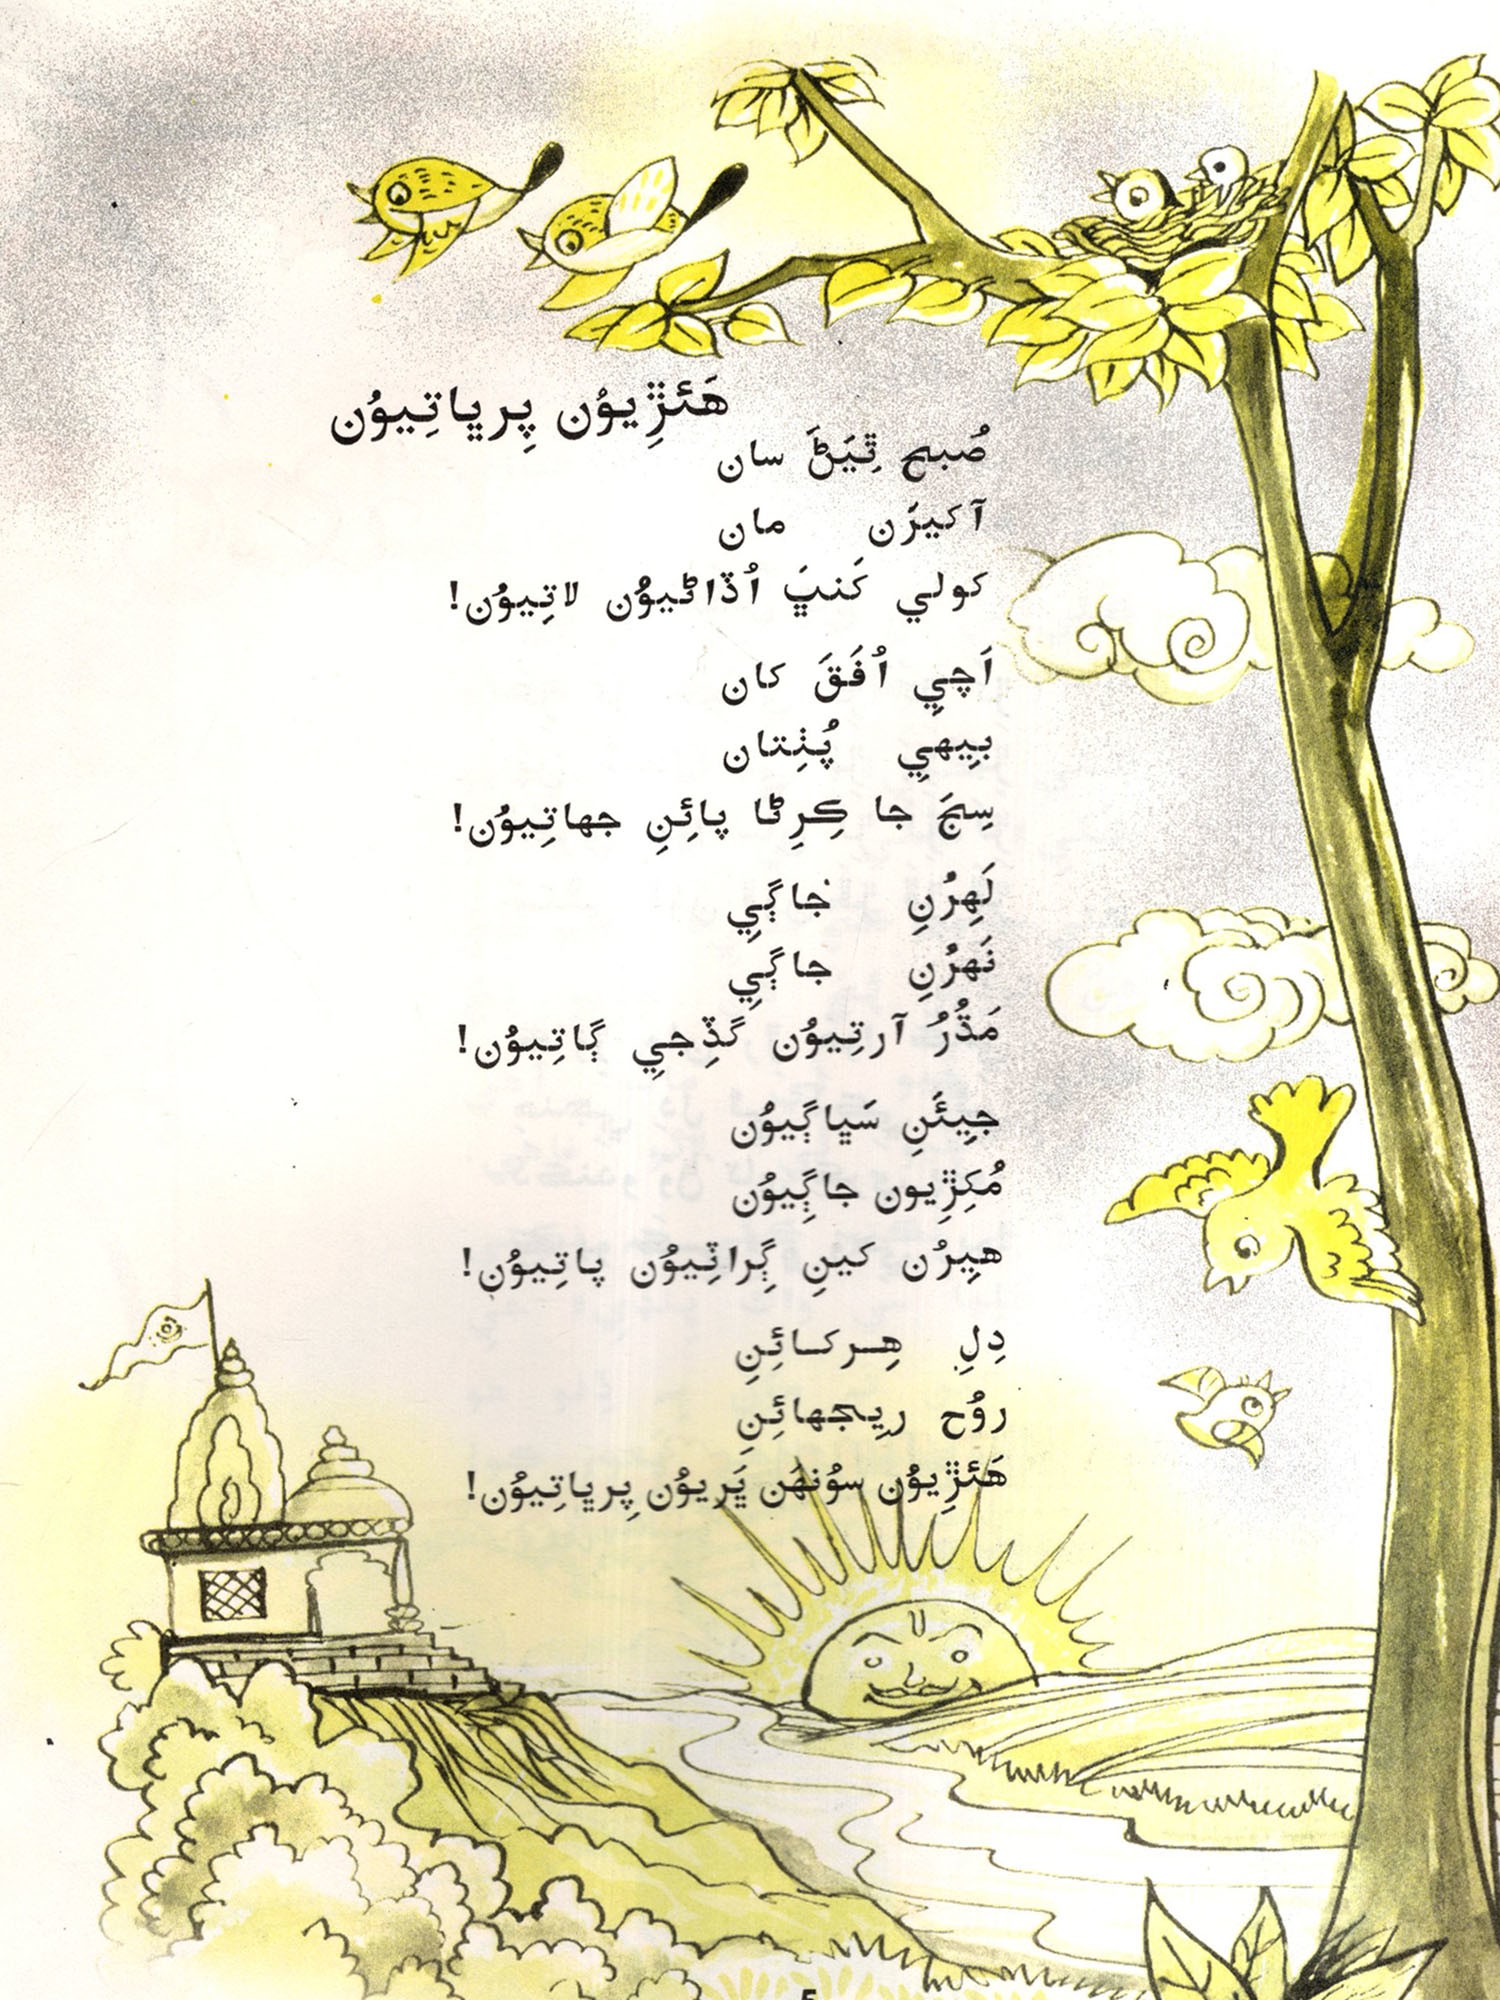 هَئڙِيوُن پِرڀاتِيوُن
صُبح ٿِيَڻَ سان
آکيرَن مان
کولي کَنڀَ اُڏاڻيوُن لاتِيوُن!
اَچيِ اُفَقَ کان
بيِهيِ پُٺِتان
سِجَ جا ڪِرِڻا پائِنِ جهاتِيوُن!
لَهِرُنِ جاڳيِ
نَهرُنِ جاڳيِ
مَڌُرُ آرتِيوُن گَڏِجيِ ڳاتِيوُن!
جيِئَنِ سَڀاڳِيوُن
مُکِڙِيون جاڳِيوُن
هيِرُن کينِ ڳِراٽِيوُن پاتِيوُن!
دِلِ هِرکائِنِ
روُح ريِجهائِنِ
هَئڙِيوُن سوُنهَن ڀَريوُن پِرڀاتِيوُن!